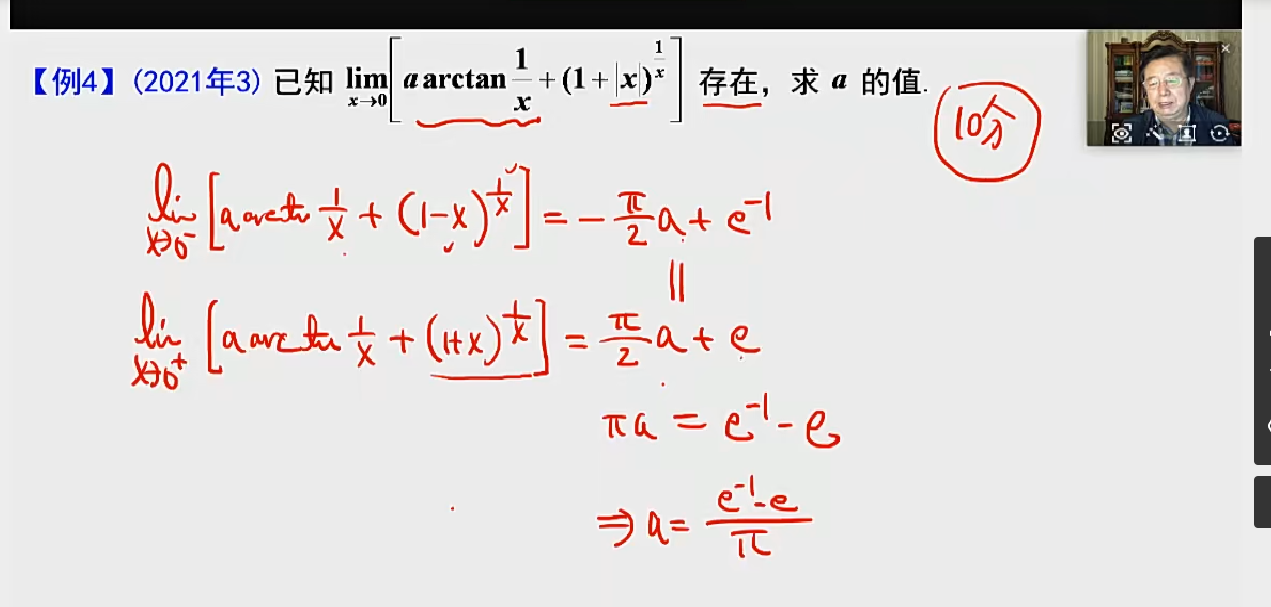 【例4】(2021年3) 已知 lim x→0 [a arctan 1/x + (1+|x|)^(1/x)] 存在，求 a 的值.
10分
lim x→0⁻ [a arctan 1/x + (1-x)^(1/x)] = -π/2 a + e⁻¹
||
lim x→0⁺ [a arctan 1/x + (1+x)^(1/x)] = π/2 a + e
πa = e⁻¹ - e
⇒ a = (e⁻¹-e)/π